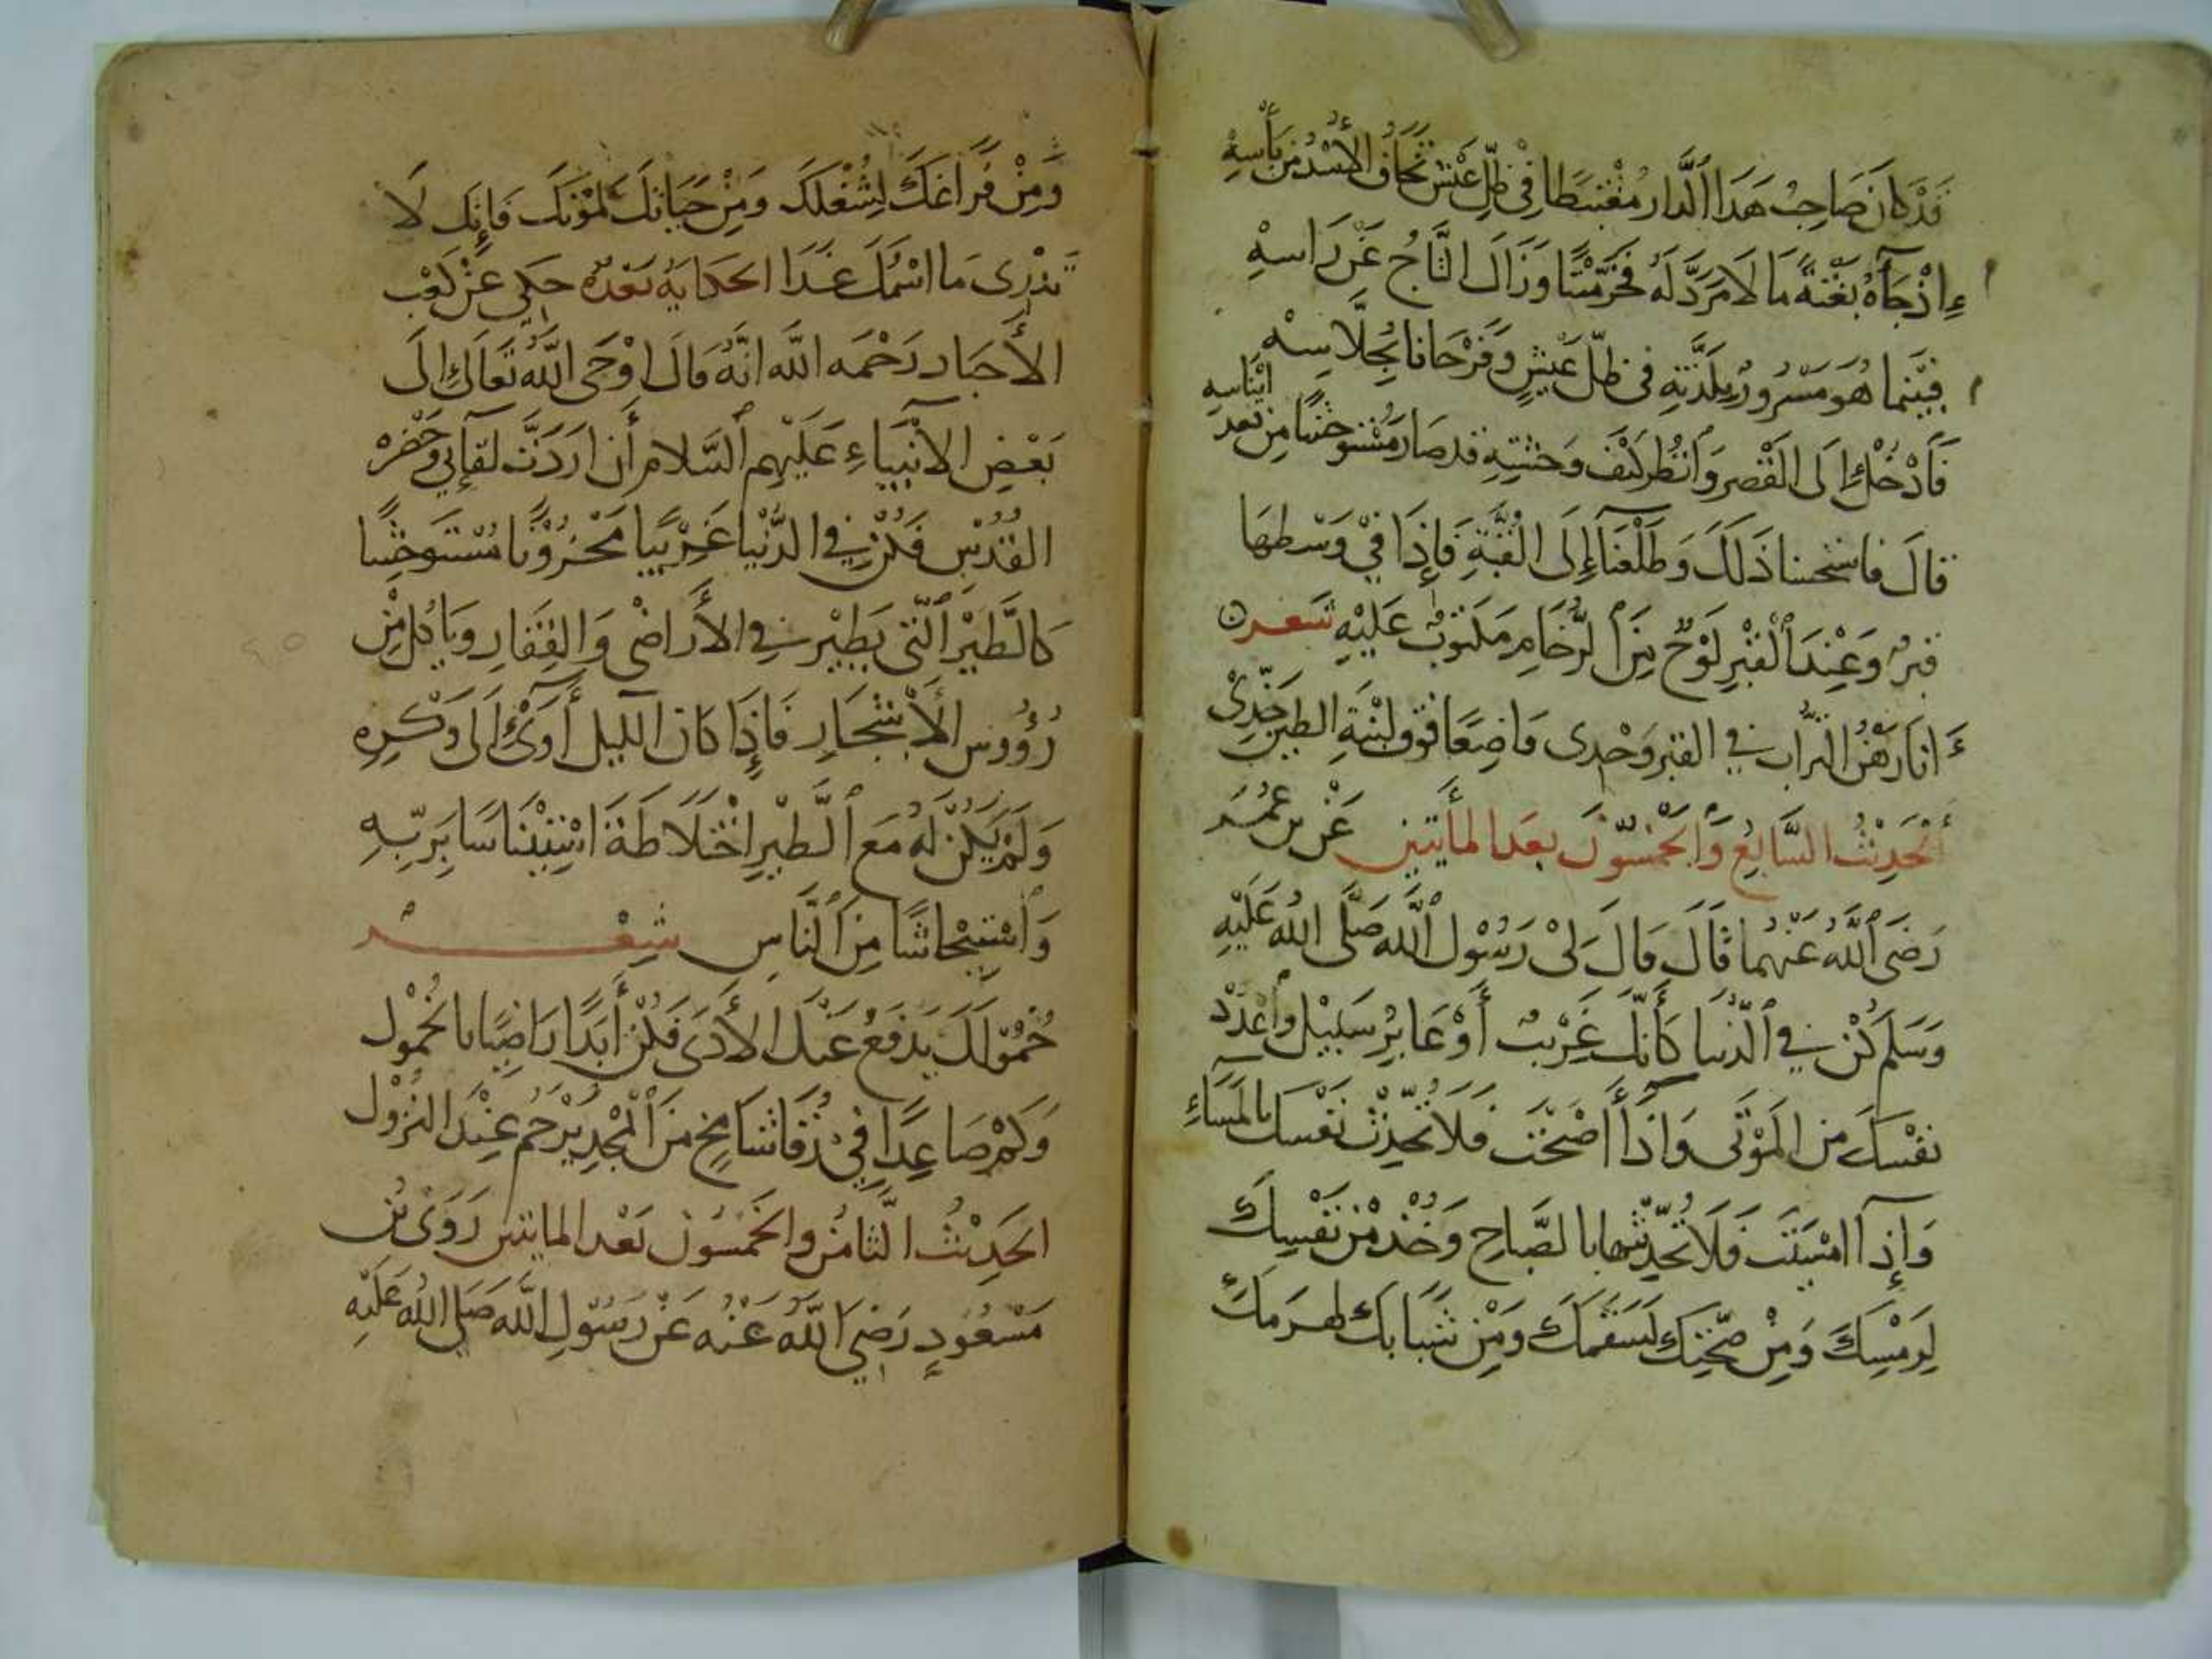 قَدْ كَانَ صَاحِبُ هَذَا الدَّارِ مُغْتَبِطًا فِي ظِلِّ عَيْشٍ تَخَافُ الأُسْدُ مِن بَأْسِهِ
إِذْ جَآءَهُ بَغْتَةً مَا لَا مَرَدَّ لَهُ فَخَرَّ مَيْتًا وَزَالَ التَّاجُ عَنْ رَاسِهِ
فَبَيْنَمَا هُوَ مَسْرُورٌ بِلَذَّتِهِ فِي ظِلِّ عَيْشٍ وَفَرْحَانًا بِجُلَّاسِهِ
فَادْخُلْ إِلَى الْقَصْرِ وَانْظُر كَيْفَ وَحْشَتِهِ قد صَارَ مُسْتَوْحِشًا مِن بَعد ايْنَاسِهِ
قَالَ فاستحسنا ذَلِكَ وَطَلَعْنَا إِلَى الْقُبَّةِ فَإِذَا فِي وَسْطِهَا
قبرٌ وَعِنْدَ الْقَبْرِ لَوْحٌ مِنَ الرُّخَامِ مَكتُوبٌ عَلَيْهِ شعر
انَا رَهْنُ التُّرَابِ فِي القبر وَحْدِي وَاضِعًا فَوْقَ لبْنَةِ الطين خَدِّيْ
اَلْحَدِيْثُ السَّابِعُ وَالْخَمْسُوْنَ بعدَ المأيتين عَنْ بن عُمَرَ
رَضِيَ اللَّهُ عَنْهُمَا قَالَ قَالَ لِيْ رَسُوْلُ اللَّهِ صَلَّى اللهُ عَلَيْهِ
وَسَلَّمَ كُنْ فِي الدُّنيا كَأَنَّكَ غَرِيْبٌ أَوْ عَابِرُ سَبِيْلٍ وَاعْدُدْ
نَفْسَكَ مِنَ الْمَوْتَى وَاذَا أَصْبَحْتَ فَلَا تُحَدِّثْ نَفْسَكَ بِالْمَسَآءِ
وَإِذَا امْسَيْتَ فَلَا تُحَدِّثْهَا بِالصَّبَاحِ وَخُذْ مِنْ نَفْسِكَ
لِرَمْسِكَ وَمِنْ صِحَّتِكَ لِسَقَمِكَ وَمِنْ شَبَابِكَ لِهَرَمِكَ
وَمِنْ فَرَاغِكَ لِشُغْلِكَ وَمِنْ حَيَاتِكَ لِمَوْتِكَ فَإِنَّكَ لَا
تَدْرِى مَا اسْمُكَ غَدَا الحكايةُ بَعْدَهُ حكي عَنْ كَعْب
الأَحْبَارِ رَحْمَه اللَّه انَّهُ قَالَ اوْحَى اللَّهُ تَعَالَى إِلَى
بَعْضِ الأَنْبِيَاءِ عَلَيْهِم السَّلَام أن ارَدْتَ لِقَإِئي وَحَضْرَةَ
القُدُسِ فَكُنْ فِي الدُّنْيَا غَرِيْبًا مَحْزُوْنًا مُسْتَوْحِشًا
كَالطَّيْرِ الَّتي يَطِيْرُ فِي الأَرَاضِي وَالقِفَارِ وَيَاكُلُ مِنْ
رُؤُوْسِ الأَشْجَارِ فَإِذَا كَانَ الليل أَوَى إِلَى وَكْرِهِ
وَلَمْ يَكُنْ لَهُ مَعَ الطَّيْرِ اخْتِلَاطَةَ اسْتِيْنَاسًا بِرَبِّهِ
وَاسْتِيْحَاشًا مِنَ النَّاسِ شِعْر
خُمُوْلُكَ يَدْفَعُ عَنْكَ الأَذَى فَكُنْ أَبَدًا رَاضِيًا بِالْخُمُوْلِ
وَكَمْ صَاعِدًا فِي ذُرًى شَامِخٍ مِنَ الْمَجْدِ يُرْحَمُ عِنْدَ النُزُوْلِ
الحَدِيْثُ الثَّامِنُ وَالْخَمْسُوْنَ بَعْدَ المايتين رَوَى بْنُ
مَسْعُوْدٍ رَضِيَ اللَّهُ عَنْهُ عَنْ رَسُوْلِ اللَّهِ صَلَى اللهُ عَلَيْه